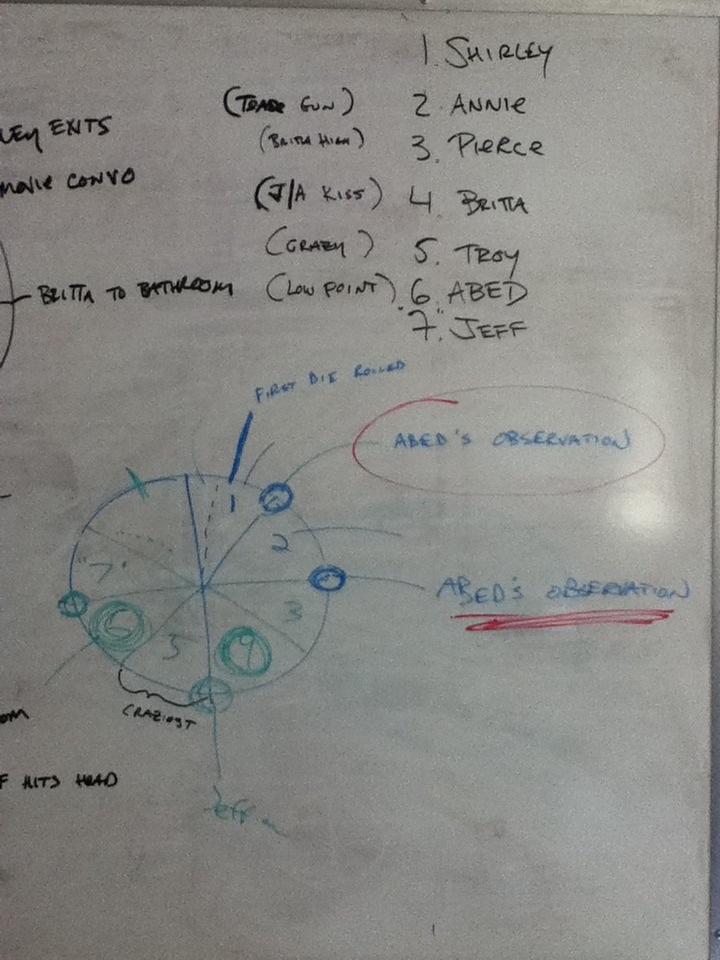 1. SHIRLEY
(TEASE GUN) 2. ANNIE
(BRITTA HIGH) 3. PIERCE
(J/A KISS) 4. BRITTA
(CRAZY) 5. TROY
(LOW POINT) 6. ABED
"7." JEFF
EXITS
MOVIE CONVO
BRITTA TO BATHROOM
FIRST DIE ROLLED
ABED'S OBSERVATION
1
2
ABED'S OBSERVATION
3
4
5
6
"7"
CRAZIEST
HITS HEAD
Jeff